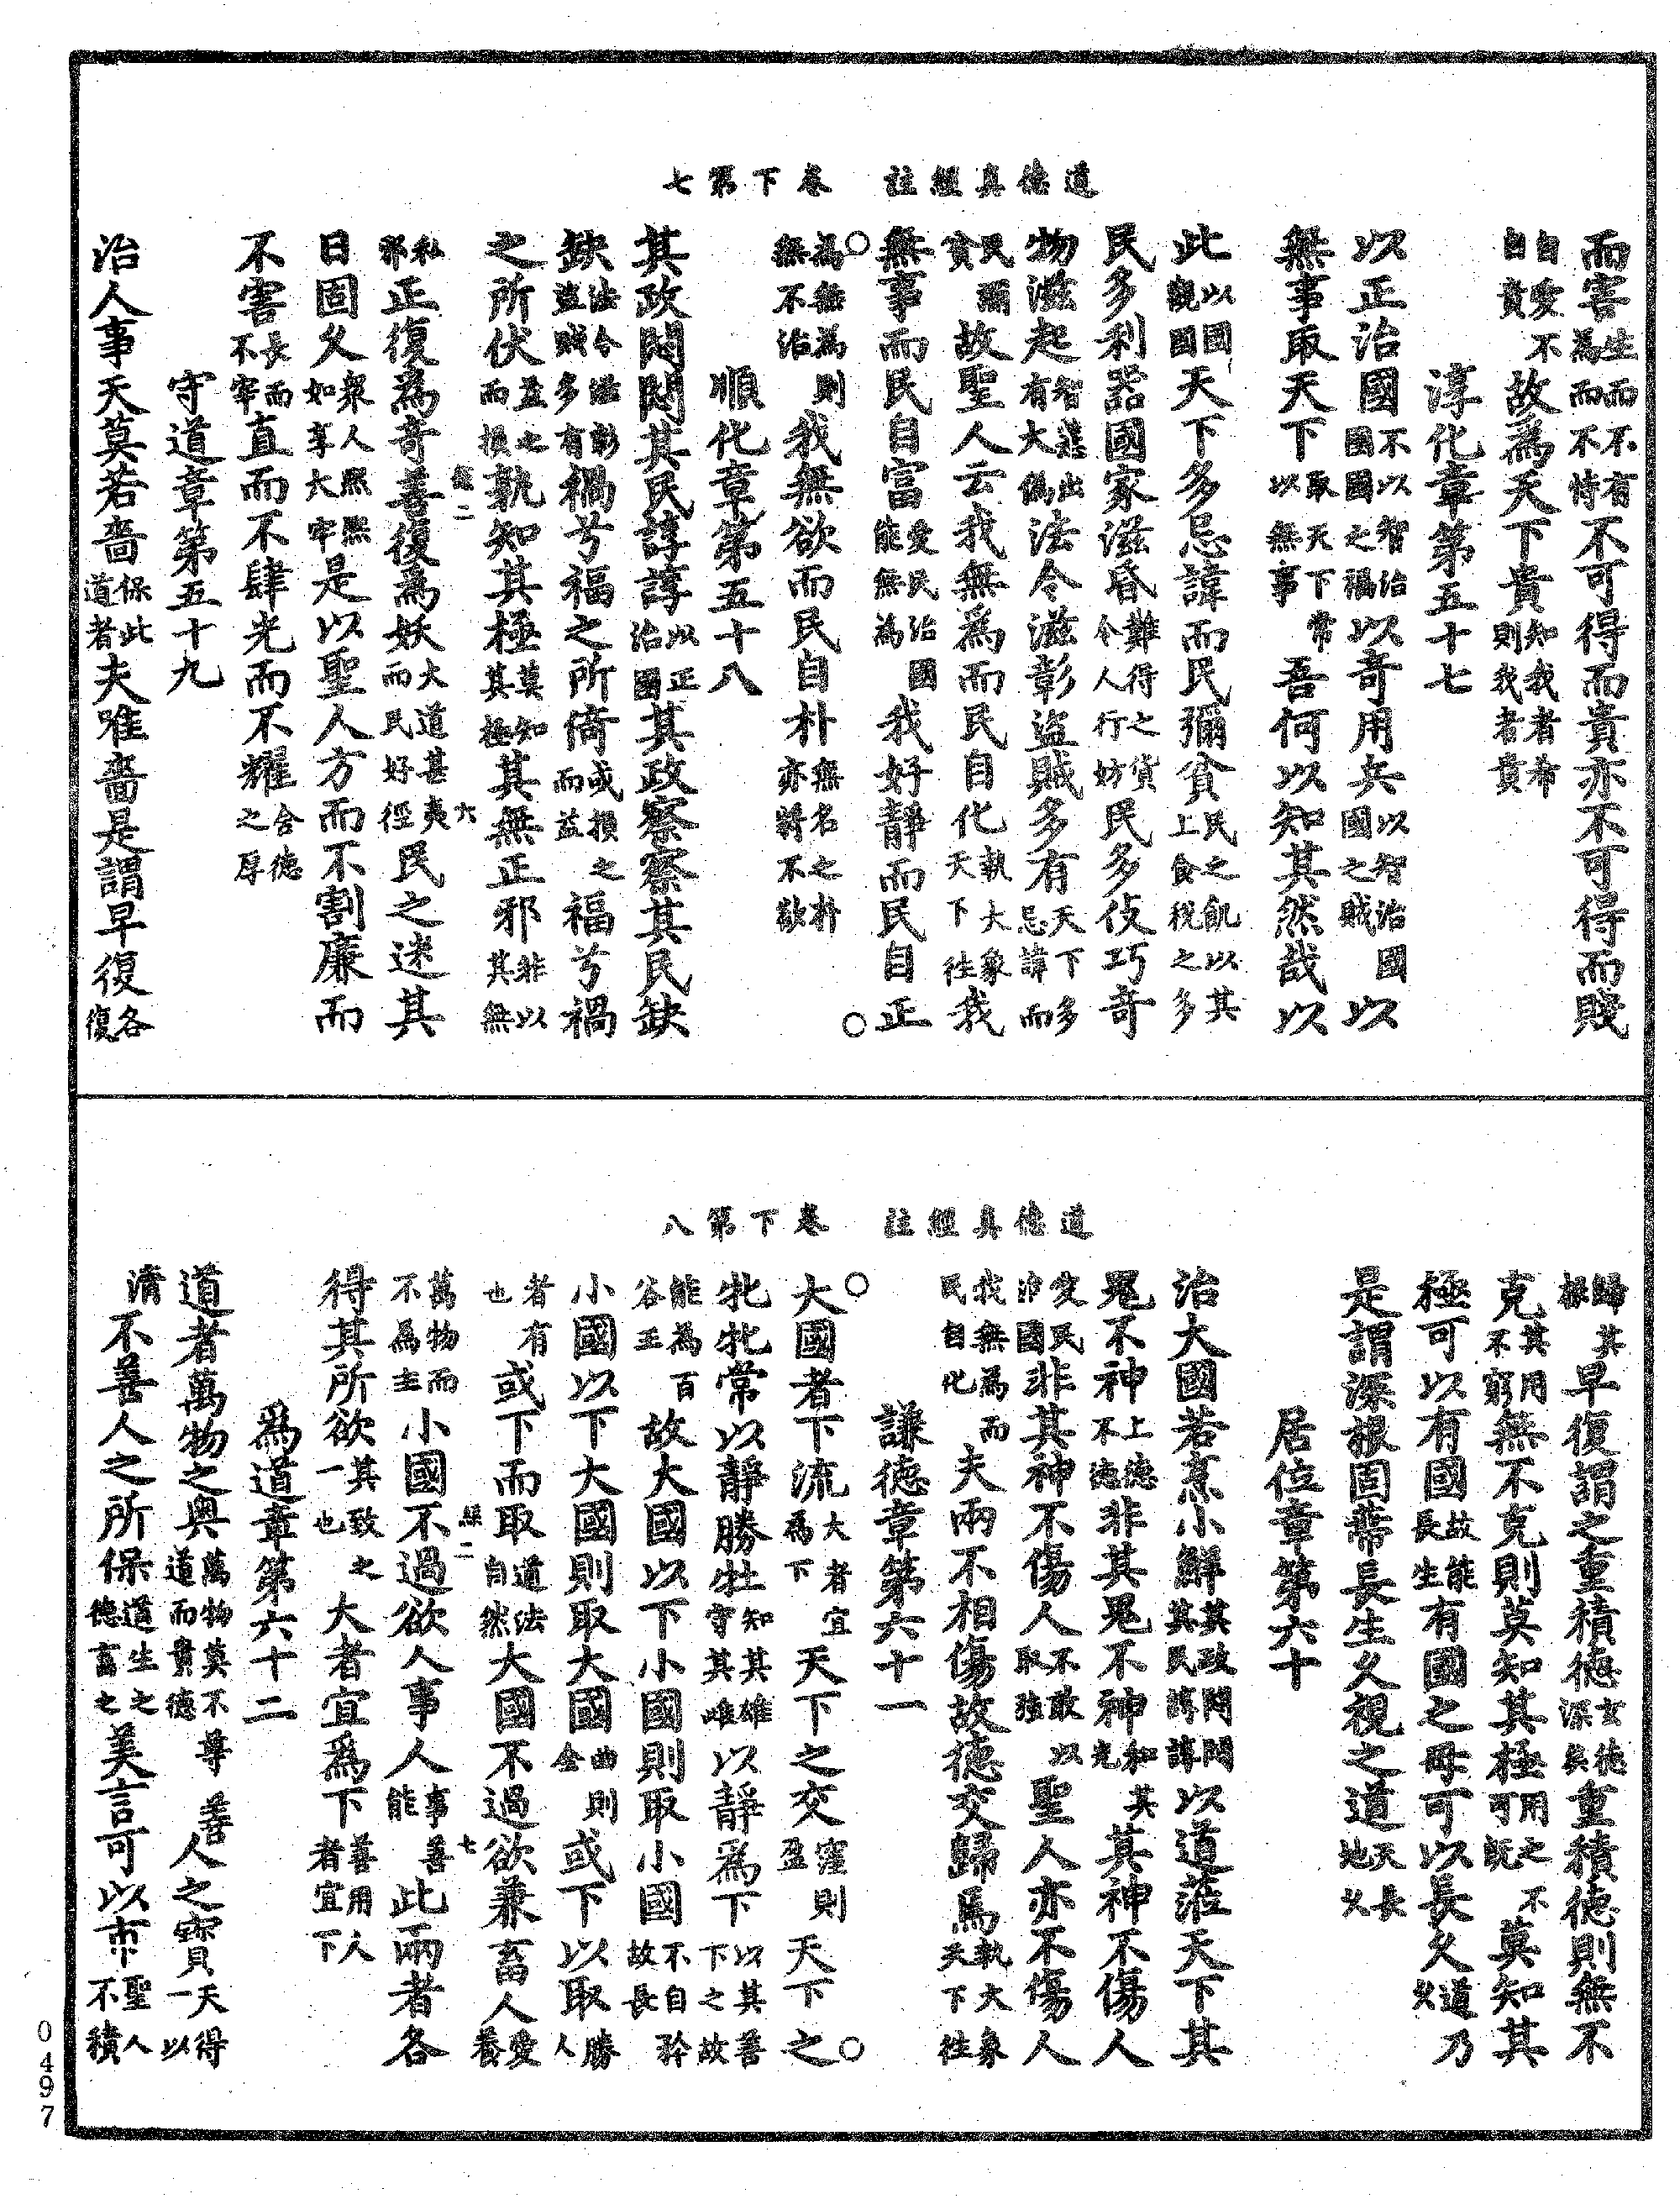 道德真經註　卷下第七
而害生而不有為而不恃不可得而貴亦不可得而賤
自愛不自貴故爲天下貴知我者希則我者貴
淳化章第五十七
以正治國不以智治國國之福以奇用兵以智治國國之賊以
無事取天下取天下常以無事吾何以知其然哉以
此以國觀國天下多忌諱而民彌貧民之飢以其上食稅之多
民多利器國家滋昏難得之貨令人行妨民多伎巧奇
物滋起智慧出有大偽法令滋彰盜賊多有天下多忌諱而
民彌貧故聖人云我無爲而民自化執大象天下往我
無事而民自富愛民治國能無為我好靜而民自正
為無為則無不治我無欲而民自朴無名之朴亦將不欲
順化章第五十八
其政悶悶其民諄諄以正治國其政察察其民缺
缺法令滋彰盜賊多有禍兮福之所倚或損之而益福兮禍
之所伏益之而損孰知其極莫知其極其無正邪非以其無
私邪正復爲奇善復爲妖大道甚夷而民好徑民之迷其
日固久衆人熙熙如享大牢是以聖人方而不割廉而
不害長而不宰直而不肆光而不耀含德之厚
守道章第五十九
治人事天莫若嗇保此道者夫唯嗇是謂早復各復
道德真經註　卷下第八
歸其根早復謂之重積德玄德深矣重積德則無不
克其用不窮無不克則莫知其極用之不可既莫知其
極可以有國故能長生有國之母可以長久道乃久
是謂深根固蔕長生久視之道天長地久
居位章第六十
治大國若烹小鮮其政悶悶其民諄諄以道蒞天下其
鬼不神上德不德非其鬼不神和其光其神不傷人
愛民治國非其神不傷人不敢以取強聖人亦不傷人
我無為而民自化夫兩不相傷故德交歸焉執大象天下往
謙德章第六十一
大國者下流大者宜為下天下之交窪則盈天下之
牝牝常以靜勝牡知其雄守其雌以靜爲下以其善下之故
能為百谷王故大國以下小國則取小國不自矜故長
小國以下大國則取大國曲則全或下以取勝人
者有也或下而取道法自然大國不過欲兼畜人愛養
萬物而不為主小國不過欲人事人事善能此兩者各
得其所欲其致之一也大者宜爲下善用人者宜下
爲道章第六十二
道者萬物之奥萬物莫不尊道而貴德善人之寶天得一以
清不善人之所保道生之德畜之美言可以市聖人不積
0497